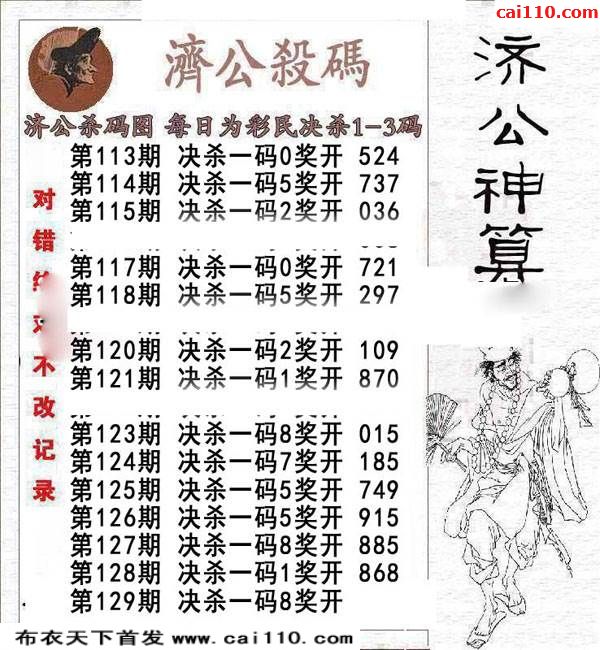 cai110.com
濟公殺碼
济公杀码图 每日为彩民决杀1-3码
第113期 决杀一码0奖开 524
第114期 决杀一码5奖开 737
第115期 决杀一码2奖开 036
第117期 决杀一码0奖开 721
第118期 决杀一码5奖开 297
第120期 决杀一码2奖开 109
第121期 决杀一码1奖开 870
第123期 决杀一码8奖开 015
第124期 决杀一码7奖开 185
第125期 决杀一码5奖开 749
第126期 决杀一码5奖开 915
第127期 决杀一码8奖开 885
第128期 决杀一码1奖开 868
第129期 决杀一码8奖开
对错
不改记录
济公神算
布衣天下首发 www.cai110.com